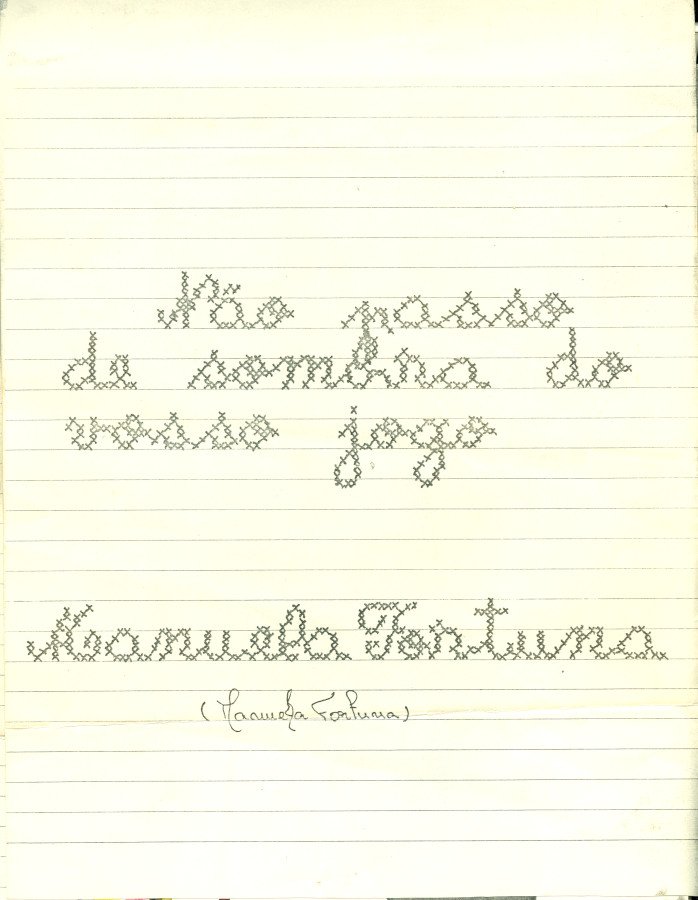 Não passo
de sombra do
vosso jogo
Manuela Fortuna
(Manuela Fortuna)